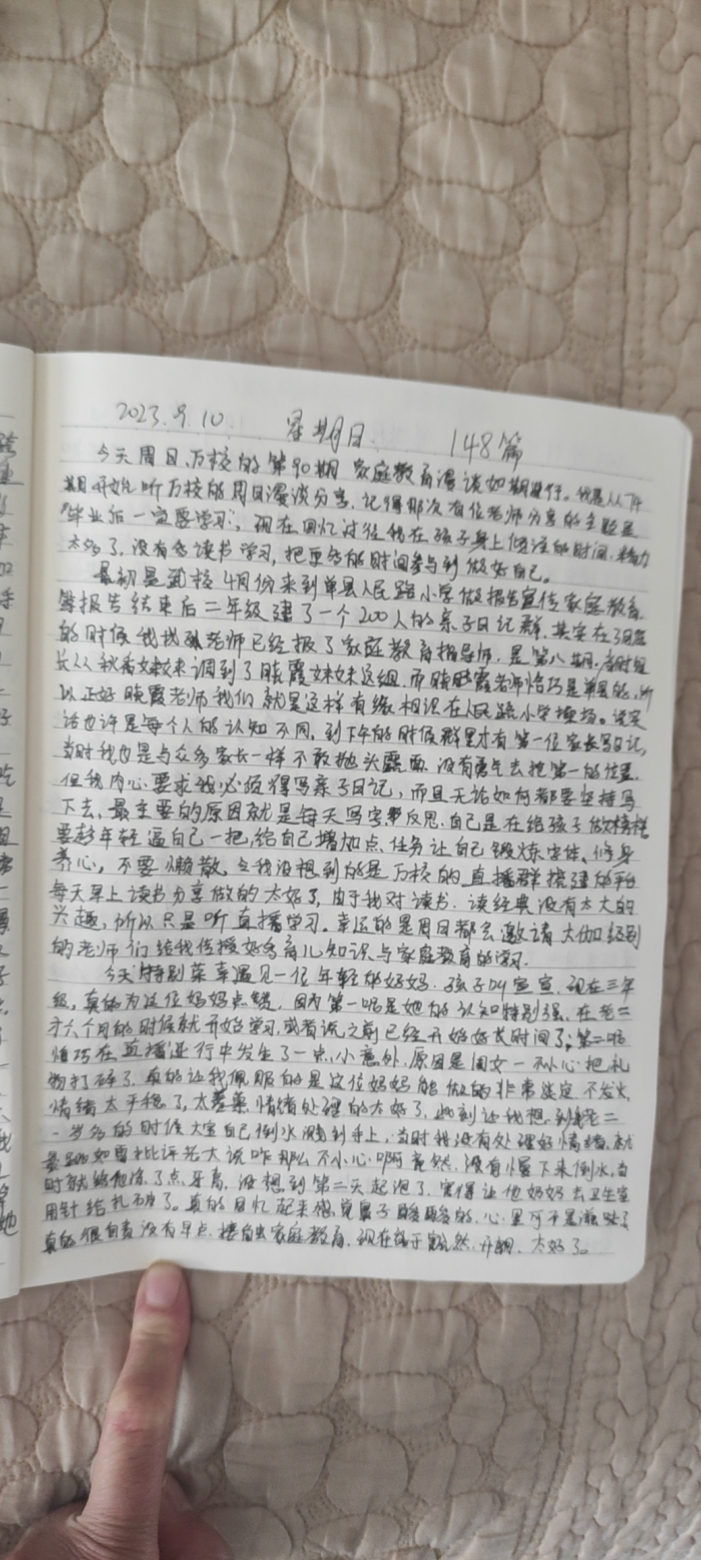 2023.9.10. 星期日. 148篇
今天周日.万校的第90期 家庭教育漫谈如期进行。我是从74
期开始听万校的周日漫谈分享,记得那次有位老师分享的主题是
"毕业后一定要学习",现在回忆过往我在孩子身上倾注的时间.精力
太多了,没有多读书学习,把更多的时间参与到做好自己。
最初是 校4月份来到单县人民路小学做报告宣传家庭教育,
报告结束后二年级建了一个200人的亲子日记群,其实在
的时候我找 老师已经报了家庭教育指导师,是第八期,当时组
长从秋香妹妹调到了晓霞妹妹这组,而晓霞老师恰巧是单县的,所
以正好晓霞老师我们就是这样有缘相识在人民路小学操场。说实
话也许是每个人的认知不同,到下午的时候群里才有第一位家长写日记,
当时我也是与众多家长一样不敢抛头露面,没有勇气去抢第一的位置.
但我内心要求我必须得写亲子日记,而且无论如何都要坚持写
下去,最主要的原因就是每天写字 反思.自己是在给孩子做榜样
要趁年轻逼自己一把,给自己增加点任务让自己锻炼字体、修身
养心,不要懒散,令我没想到的是万校的直播群搭建的平台
每天早上读书分享做的太好了,由于我对读书.读经典没有太大的
兴趣,所以只是听直播学习.幸运的是周日都会邀请大伽级别
的老师们给我传授好多育儿知识与家庭教育的学习.
今天特别荣幸遇见一位年轻的好妈妈.孩子叫宣宣,现在三年
级,真的为这位妈妈点赞,因为第一呢是她的认知特别强,在老二
才六个月的时候就开始学习,或者说之前已经开始好长时间了;第二呢
恰巧在直播进行中发生了一点小意外,原因是闺女一不小心把礼
物打碎了.真的让我佩服的是这位妈妈能做的非常淡定 不发火,
情绪太平稳了,太羡慕.情绪处理的太好了,此刻让我想到老二
一岁多的时候大宝自己倒水烫到手上,当时我没有处理好情绪.就
批评老大说咋那么不小心啊 竟然.没有 下来倒水,当
时就给他 了点牙膏,没想到第二天起泡了.害得让他奶奶去卫生室
用针给扎破了。真的回忆起来感觉鼻子酸酸的.心里可不是滋味了
真的很自责没有早点接触家庭教育.现在终于豁然开朗.太好了。